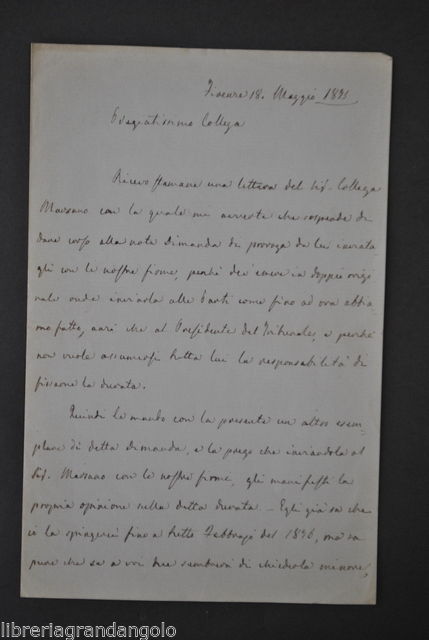 Firenze 18. Maggio 1895
Pregiatissimo Collega
Ricevo stamane una lettera del Sig. Collega
Marsano con la quale mi avverte che sospende di
dare corso alla nota dimanda di proroga da lui inviata
gli con le nostre firme, perchè dev'essere in doppio origi
nale onde inviarla alle Parti come fino ad ora abbia
mo fatto, anzi che al Presidente del Tribunale, e perchè
non vuole assumersi tutta lui la responsabilità di
fissarne la durata.
Quindi le mando con la presente un altro esem
plare di detta dimanda, e la prego che inviandola al
Sig. Marsano con le nostre firme, gli manifesti la
propria opinione nella detta durata. - Egli già sa che
io la spingerei fino a tutto Febbrajo del 1896, ma sa
pure che se a voi due sembrasse di chiederla minore,
libreriagrandangolo